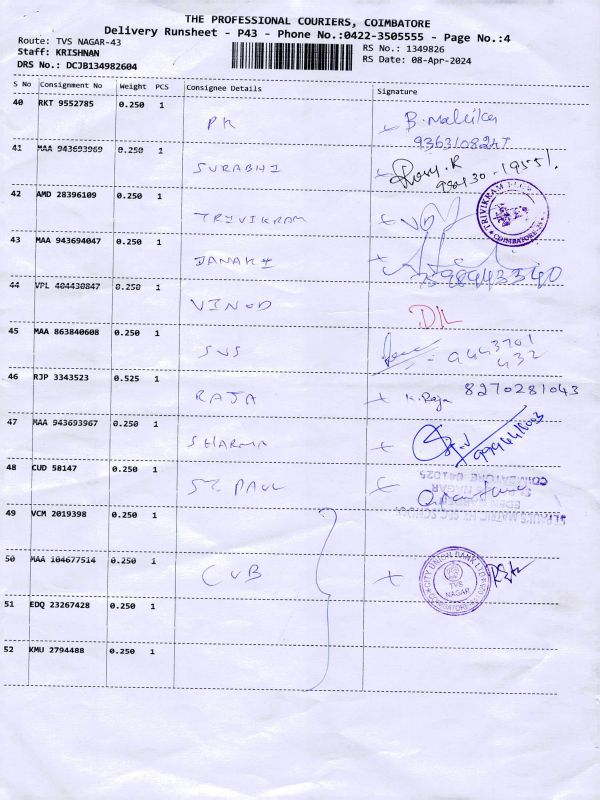 THE PROFESSIONAL COURIERS, COIMBATORE
Delivery Runsheet - P43 - Phone No.:0422-3505555 - Page No.:4
Route: TVS NAGAR-43
RS No.: 1349826
Staff: KRISHNAN
RS Date: 08-Apr-2024
DRS No.: DCJB134982604
S No Consignment No Weight PCS Consignee Details Signature
40 RKT 9552785 0.250 1 PK B.Mallika
9363108247
41 MAA 943693969 0.250 1 SURABHI
42 AMD 28396109 0.250 1 TRIVIKRAM
TRIVIKRAM
COIMBATORE
43 MAA 943694047 0.250 1 JANAKI
44 VPL 404430847 0.250 1 VINOD DL
45 MAA 863840608 0.250 1 SVS 9443701
432
46 RJP 3343523 0.525 1 RAJA K.Raja 8270281043
47 MAA 943693967 0.250 1 SHARMA
48 CUD 58147 0.250 1 ST. PAUL
COIMBATORE 641025
49 VCM 2019398 0.250 1
50 MAA 104677514 0.250 1 CUB
CITY UNION BANK LTD
TVS
NAGAR
COIMBATORE
51 EDQ 23267428 0.250 1
52 KMU 2794488 0.250 1